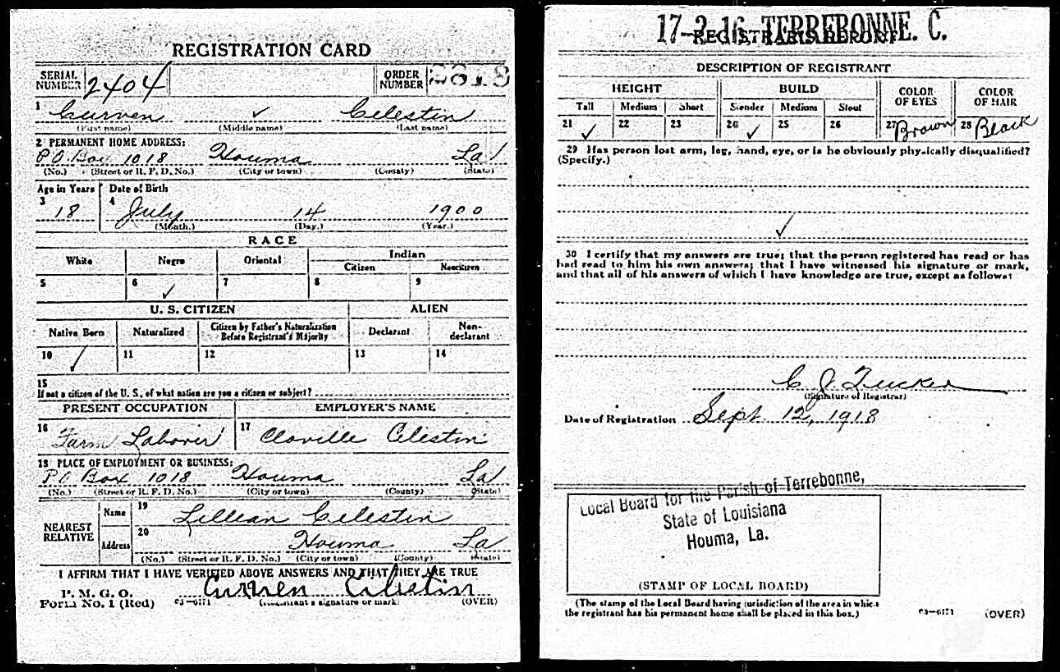 REGISTRATION CARD
SERIAL NUMBER 2404 ORDER NUMBER
1 Curven ✓ Celestin
(First name) (Middle name) (Last name)
2 PERMANENT HOME ADDRESS:
P.O. Box 1018 Houma La
(No.) (Street or R. F. D. No.) (City or town) (County) (State)
Age in Years Date of Birth
3 18 4 July 14 1900
(Month.) (Day.) (Year.)
RACE
White Negro Oriental Indian
Citizen Noncitizen
5 6 ✓ 7 8 9
U. S. CITIZEN ALIEN
Native Born Naturalized Citizen by Father's Naturalization Before Registrant's Majority Declarant Non-declarant
10 ✓ 11 12 13 14
15
If not a citizen of the U. S., of what nation are you a citizen or subject?
PRESENT OCCUPATION EMPLOYER'S NAME
16 Farm Laborer 17 Cloville Celestin
18 PLACE OF EMPLOYMENT OR BUSINESS:
P.O. Box 1018 Houma La
(No.) (Street or R. F. D. No.) (City or town) (County) (State)
NEAREST RELATIVE
Name 19 Lillian Celestin
Address 20 Houma La
(No.) (Street or R. F. D. No.) (City or town) (County) (State)
I AFFIRM THAT I HAVE VERIFIED ABOVE ANSWERS AND THAT THEY ARE TRUE
P. M. G. O.
Form No. 1 (Red) 03—6171 Curven Celestin
(Registrant's signature or mark) (OVER)
17-2-16 TERREBONNE. C.
REGISTRAR'S REPORT
DESCRIPTION OF REGISTRANT
HEIGHT BUILD COLOR OF EYES COLOR OF HAIR
Tall Medium Short Slender Medium Stout
21 ✓ 22 23 24 ✓ 25 26 27 Brown 28 Black
29 Has person lost arm, leg, hand, eye, or is he obviously physically disqualified?
(Specify.)
✓
30 I certify that my answers are true; that the person registered has read or has
had read to him his own answers; that I have witnessed his signature or mark,
and that all of his answers of which I have knowledge are true, except as follows:
C J Tucker
(Signature of Registrar)
Date of Registration Sept 12, 1918
Local Board for the Parish of Terrebonne,
State of Louisiana
Houma, La.
(STAMP OF LOCAL BOARD)
(The stamp of the Local Board having jurisdiction of the area in which
the registrant has his permanent home shall be placed in this box.)
03—6171 (OVER)